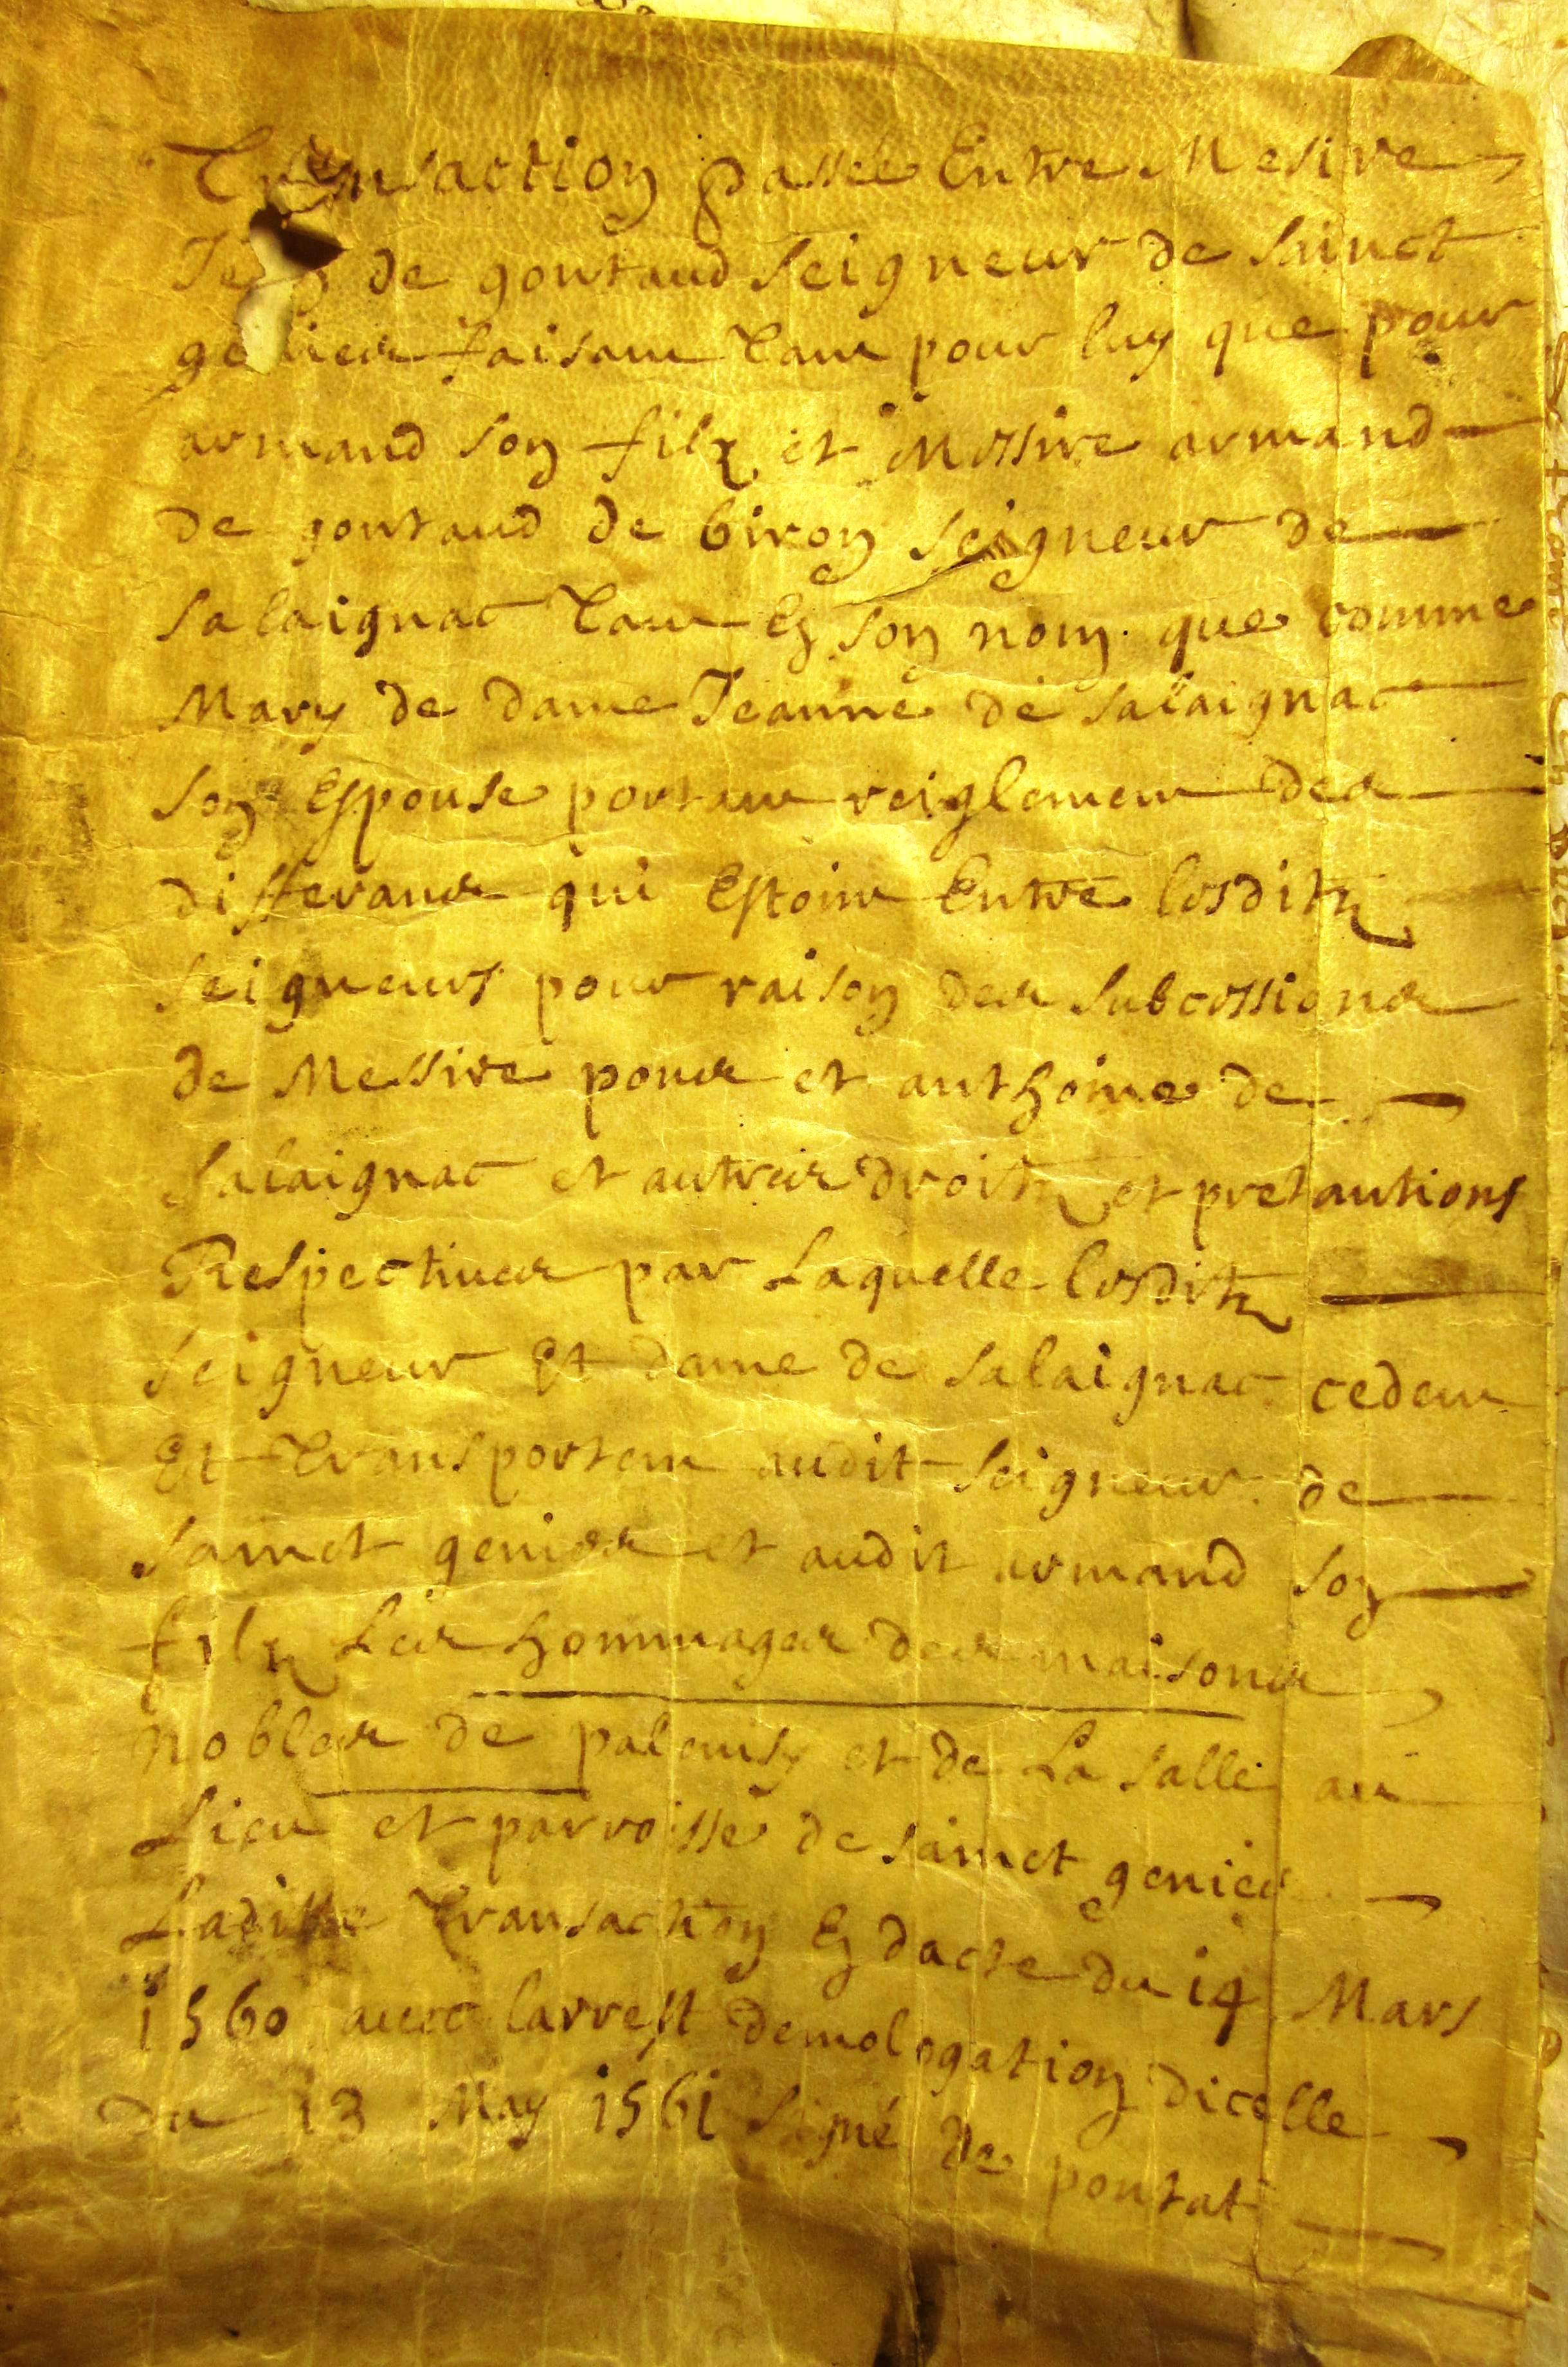 Transaction passée Entre Mesire
Jean de gontaud Seigneur de sainct
genies faisant tant pour luy que pour
armand son filz et Messire armand
de gontaud de biron seigneur de
salaignac tant En son nom que comme
Mary de dame Jeanne de salaignac
son Espouse portant reiglement des
differans qui Estoint Entre lesditz
seigneurs pour raison des subcessions
de Messire pons et anthoine de
salaignac et autres droitz et pretantions
Respectives par Laquelle lesditz
seigneur Et dame de salaignac cedent
Et transportent audit seigneur de
sainct genies et audit armand son
filz Les hommages des maisons
nobles de et de La salle au
Lieu et parroisse de sainct genies
Laditte transaction En dacte du 14 Mars
1560 avec larrest demologation dicelle
du 13 May 1561 signé de pontat